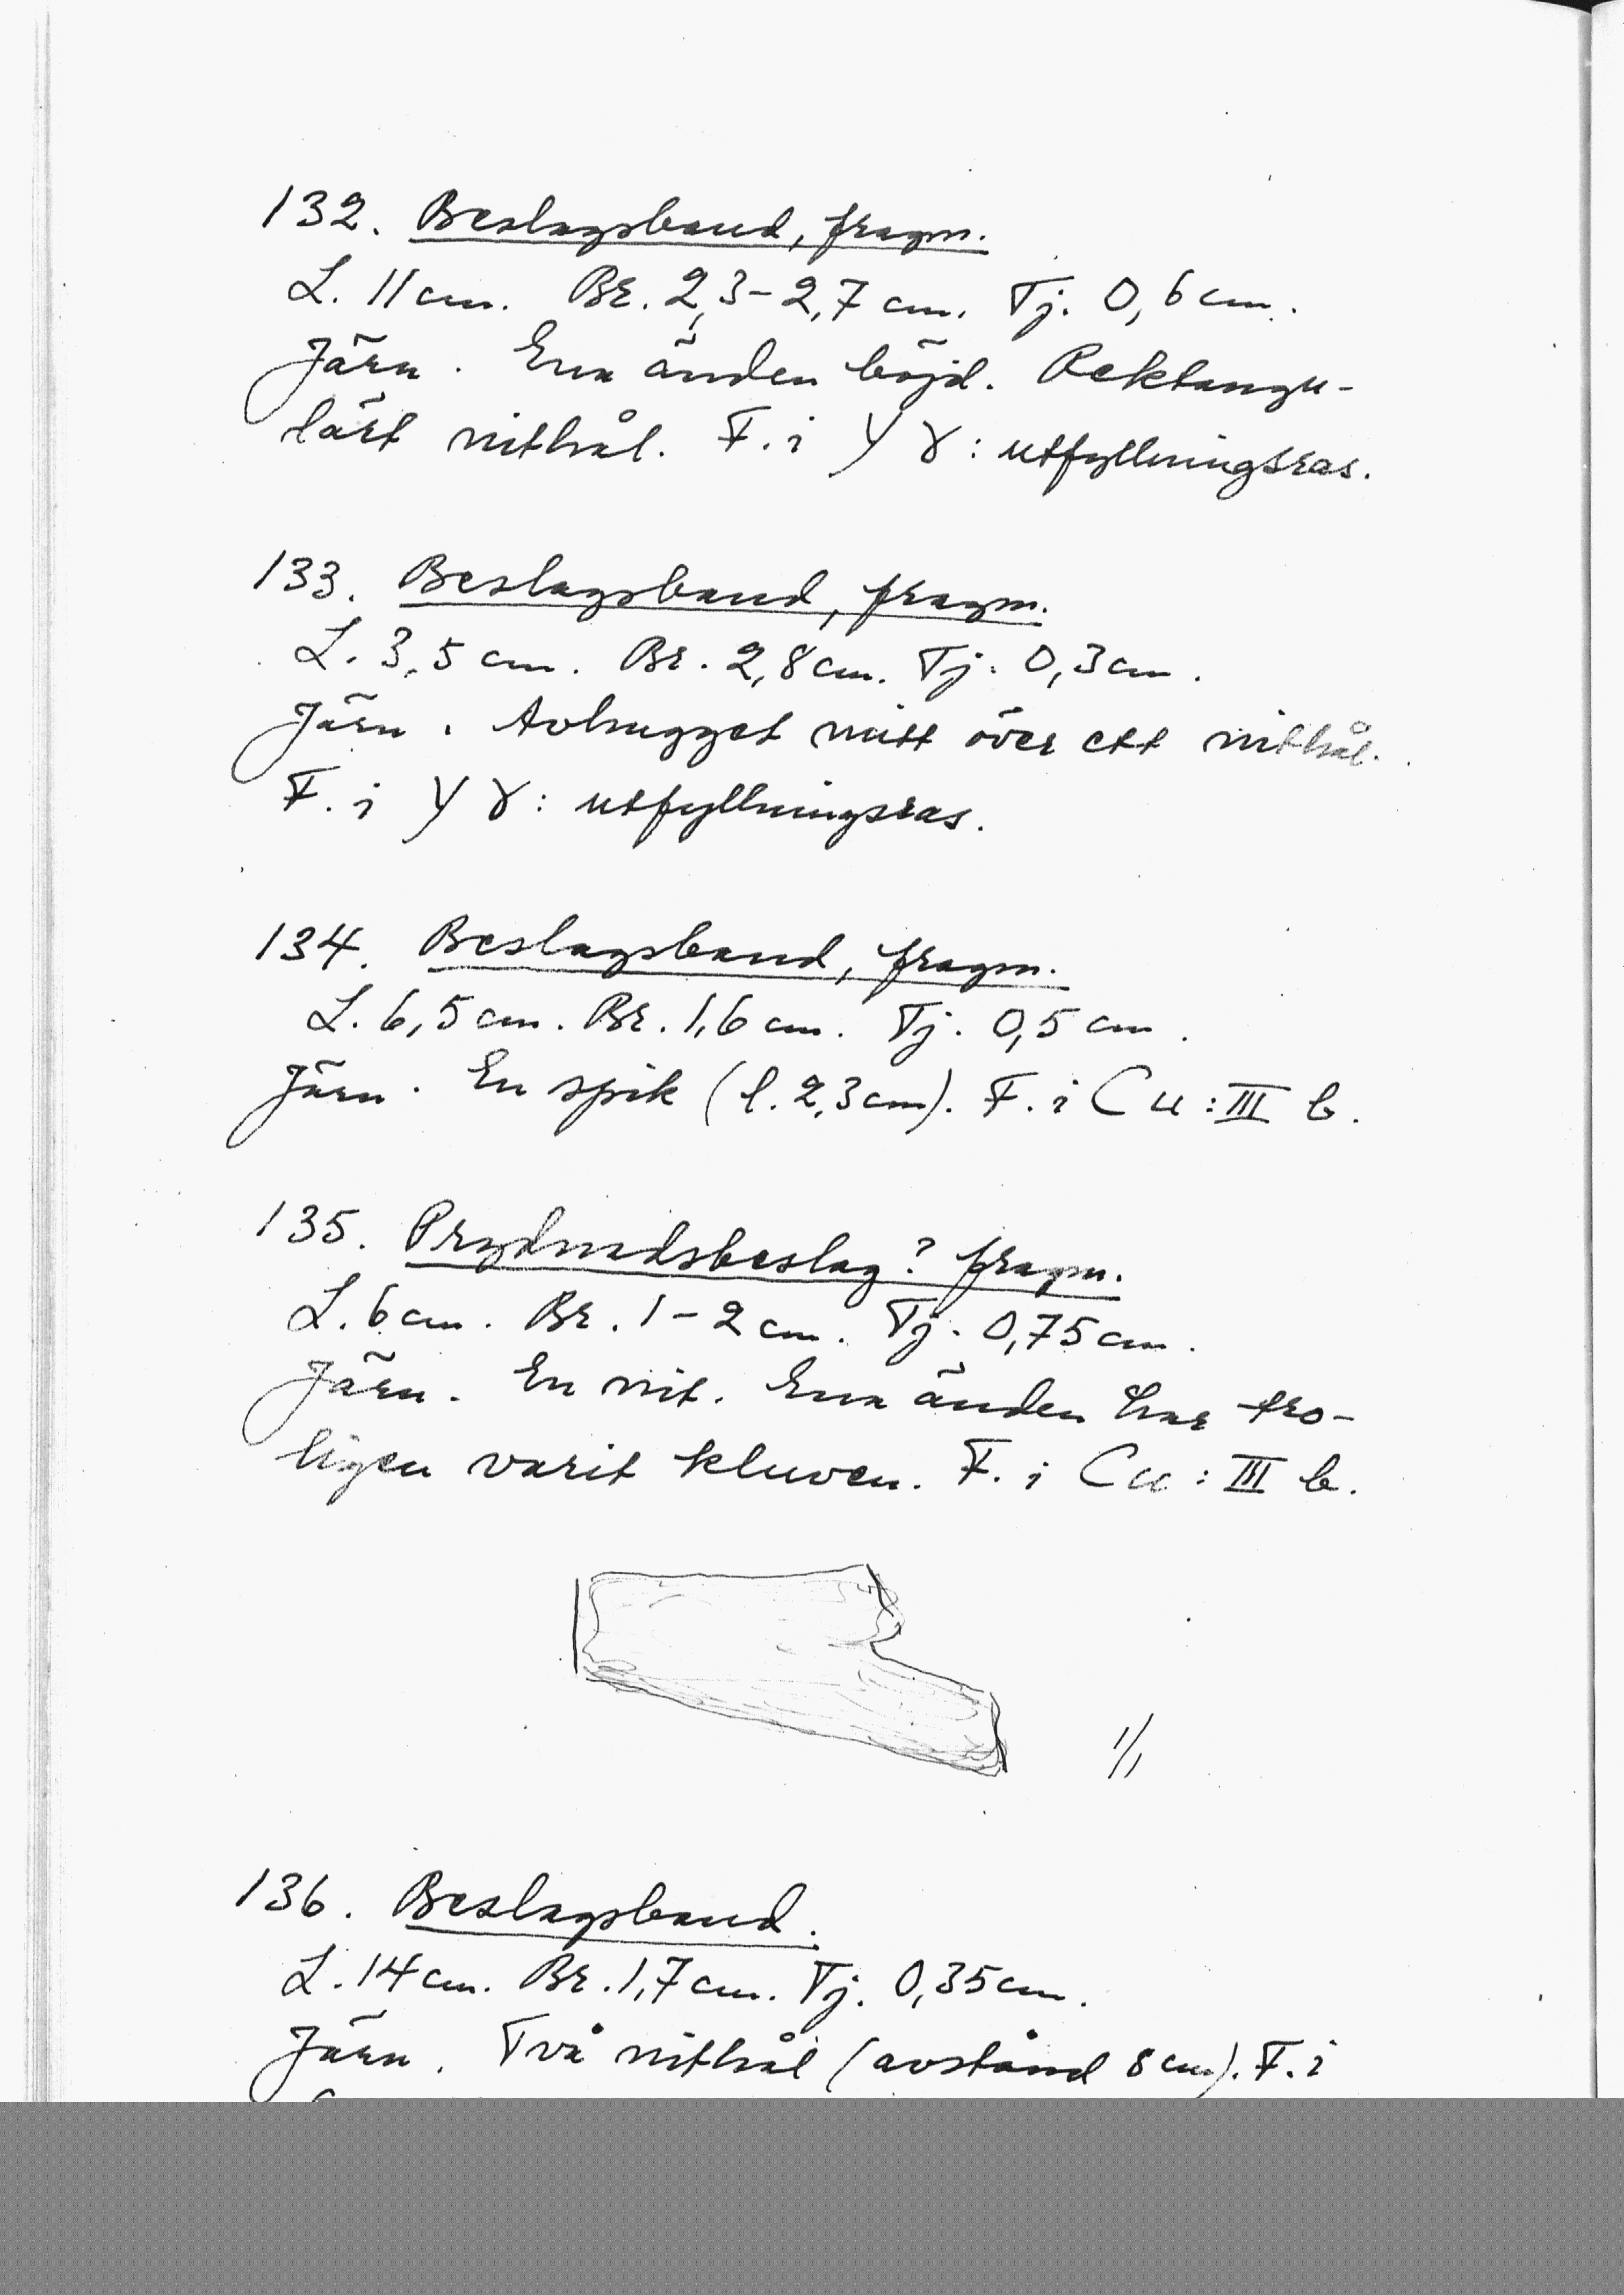 132. Beslagsband, fragm.
L. 11 cm. Br. 2,3-2,7 cm. Tj. 0,6 cm.
Järn. Ena änden böjd. Rektangu-
lärt nithål. F. i Y γ: utfyllningsras.
133. Beslagsband, fragm.
L. 3,5 cm. Br. 2,8 cm. Tj. 0,3 cm.
Järn. Avhugget mitt över ett nithål.
F. i Y γ: utfyllningsras.
134. Beslagsband, fragm.
L. 6,5 cm. Br. 1,6 cm. Tj. 0,5 cm.
Järn. En spik (l. 2,3 cm). F. i C u: III b.
135. Prydnadsbeslag? fragm.
L. 6 cm. Br. 1-2 cm. Tj. 0,75 cm.
Järn. En nit. Ena änden har tro-
ligen varit kluven. F. i C u: III b.
1/1
136. Beslagsband.
L. 14 cm. Br. 1,7 cm. Tj. 0,35 cm.
Järn. Två nithål (avstånd 8 cm). F. i